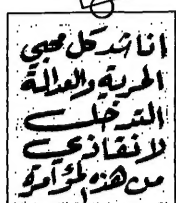 اناشد كل محبي
الحرية والعدالة
التدخل
لانقاذي
من هذه المؤامرة